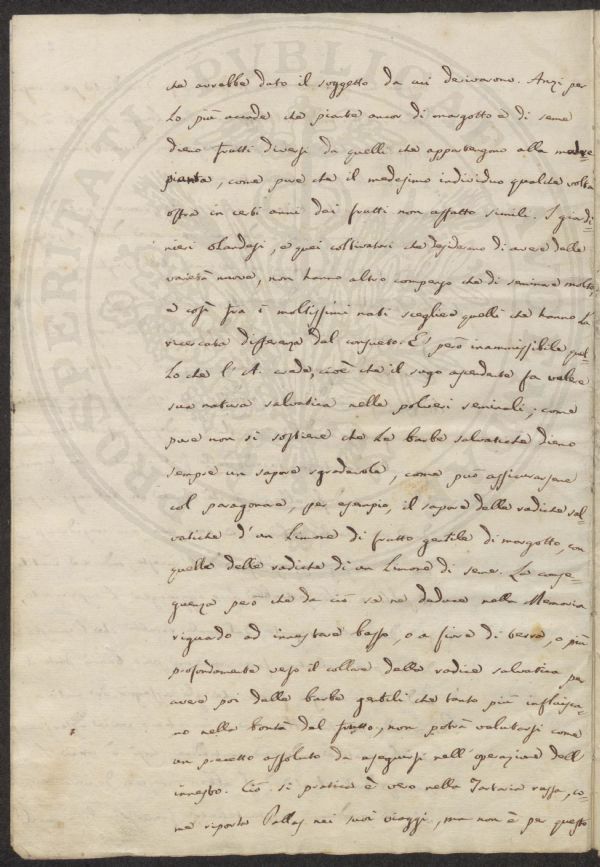 che avrebbe dato il soggetto da cui derivarono. Anzi per
lo più accade che piante ancor di margotto e di seme
dieno frutti diversi da quelli che appartengono alla madre
pianta, come pure che il medesimo individuo qualche volta
offra in certi anni dei frutti non affatto simili. I giardi-
nieri olandesi, e quei coltivatori che desiderano di avere delle
varietà nuove, non hanno altro compenso che di seminare molto,
e così fra i moltissimi nati scegliere quelli che hanno la
ricercata differenza dal consueto. E' però inammissibile quel-
lo che l'A. crede, cioè che il sugo ascendente fa valere
sua natura salvatica nelle polveri seminali; come
pure non si sostiene che le barbe salvatiche dieno
sempre un sapore sgradevole, come può assicurarsene
col paragonare, per esempio, il sapore delle radiche sal-
vatiche d'un Limone di frutto gentile di margotto, con
quelle delle radiche di un Limone di seme. La conse-
guenza però che da ciò se ne deduce nella Memoria
riguardo ad innestare basso, o a fiore di terra, o più
profondamente verso il collare della radice salvatica per
avere poi delle barbe gentili che tanto più influisca-
no nella bontà del frutto, non potrà valutarsi come
un precetto assoluto da eseguirsi nell'operazione dell'
innesto. Ciò si pratica è vero nella Tartaria russa, co-
me riporta Pallas nei suoi viaggi, ma non è per questo